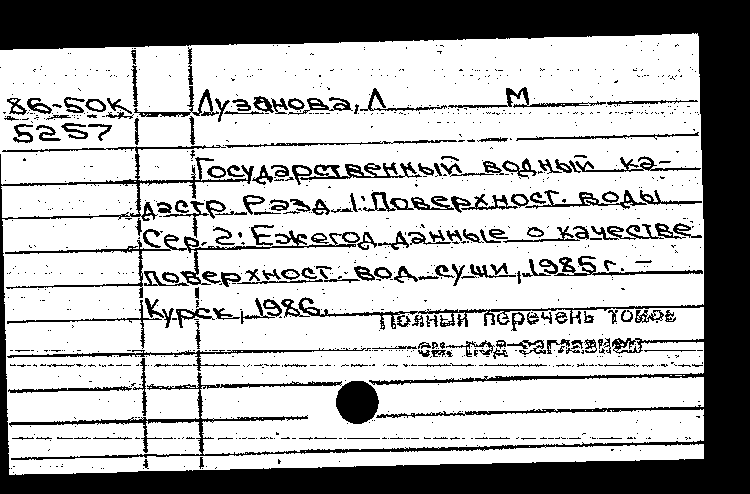 86-50К Лузанова, Л М
5257
Государственный водный ка-
дастр. Разд. 1: Поверхност. воды
Сер. 2: Ежегод. данные о качестве
поверхност. вод суши, 1985 г. –
Курск, 1986.
Полный перечень томов
см. под заглавием